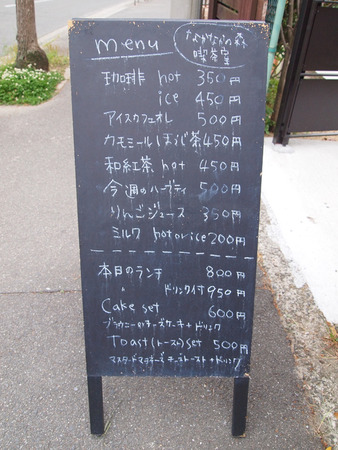 menu
喫茶室
珈琲 hot 350円
ice 450円
アイスカフェオレ 500円
カモミールほうじ茶 450円
和紅茶 hot 450円
今週のハーブティ 500円
りんごジュース 350円
ミルク hot or ice 200円
本日のランチ 800円
〃 ドリンク付 950円
Cake set 600円
ブラウニーorチーズケーキ+ドリンク
Toast (トースト) set 500円
チーズトースト+ドリンク